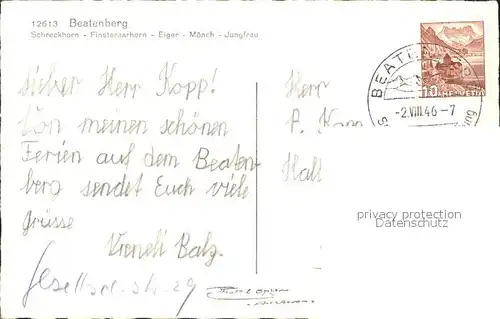 12613 Beatenberg
Schreckhorn - Finsteraarhorn - Eiger - Mönch - Jungfrau
Lieber Herr Kopp!
Von meinen schönen
Ferien auf dem Beaten-
berg sendet Euch viele
Grüsse
Vreneli Balz.
Herr
P. Kopp
Hall
10 HELVETIA
BEATE
-2.VIII.46-7
privacy protection
Datenschutz